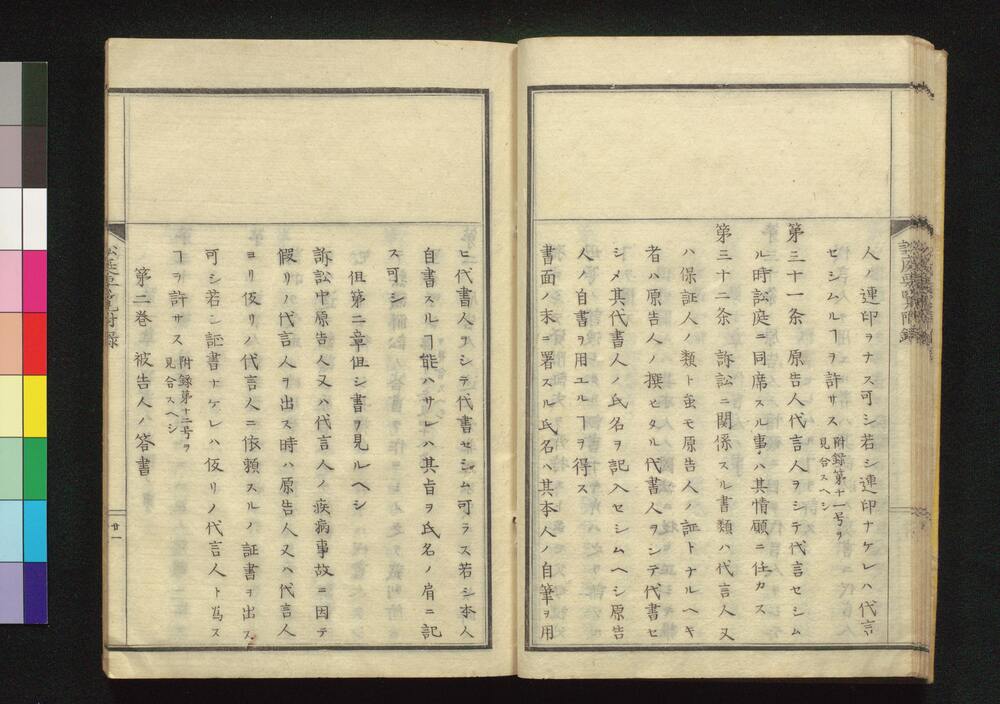 人ノ連印ヲナス可シ若シ連印ナケレハ代言
セシムルヿヲ許サス附録第十一号ヲ
見合スヘシ
第三十一条 原告人代言人ヲシテ代言セシム
ル時訟庭ニ同席スル事ハ其情願ニ任カス
第三十二条 訴訟ニ関係スル書類ハ代言人又
ハ保証人ノ類ト雖モ原告人ノ証トナルヘキ
者ハ原告人ノ撰ヒタル代書人ヲシテ代書セ
シメ其代書人ノ氏名ヲ記入セシムヘシ原告
人ノ自書ヲ用エルヿヲ得ス
書面ノ末ニ署スル氏名ハ其本人ノ自筆ヲ用
ヒ代書人ヲシテ代書セシム可ラス若シ本人
自書スルヿ能ハサレハ其旨ヲ氏名ノ肩ニ記
ス可シ
但第二章但シ書ヲ見ルヘシ
訴訟中原告人又ハ代言人ノ疾病事故ニ因テ
假リノ代言人ヲ出ス時ハ原告人又ハ代言人
ヨリ仮リノ代言人ニ依頼スルノ証書ヲ出ス
可シ若シ証書ナケレハ仮リノ代言人ト為ス
ヿヲ許サス附録第十二号ヲ
見合スヘシ
第二巻 被告人ノ答書
廿一